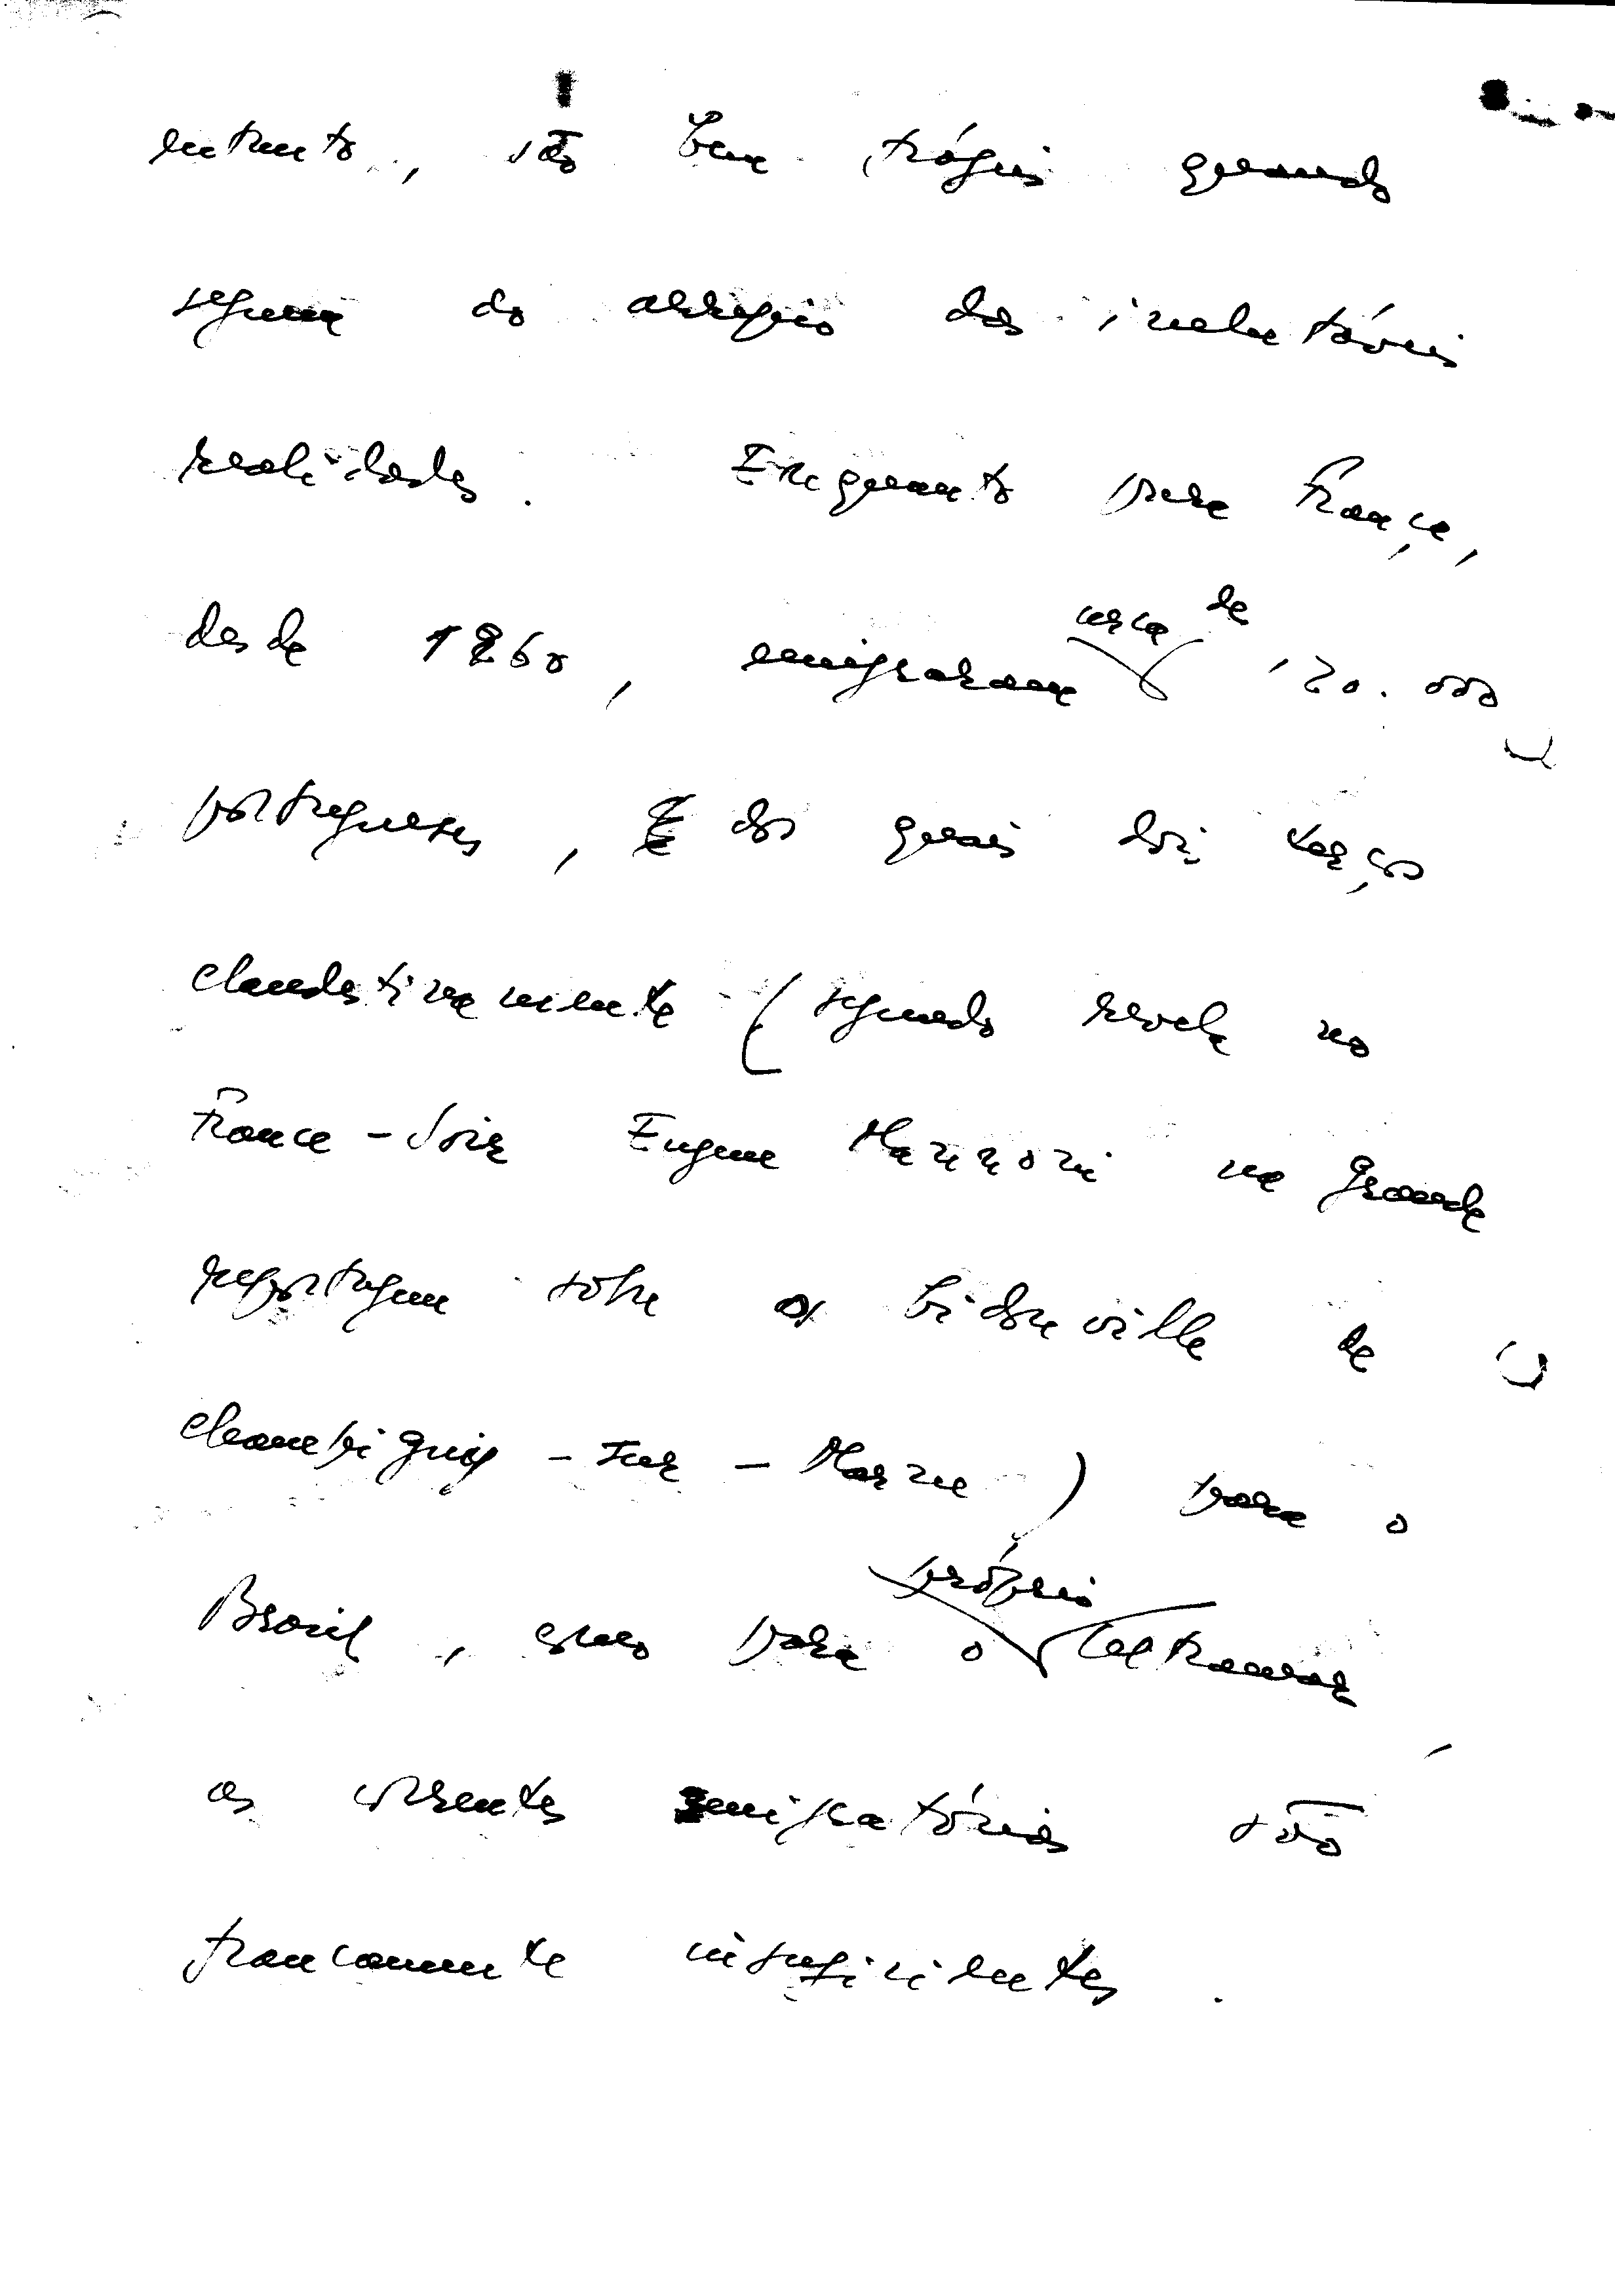 entanto, são bem frágeis quando
seguem ao arrepio das inelutáveis
realidades. Enquanto para França,
desde 1960, emigraram cerca de 120.000
portugueses, dos quais dois terços
clandestinamente (segundo revela no
France-Soir Eugene Mannoni na grande
reportagem sobre o bidonville de
Champigny-sur-Marne) para o
Brasil, como para o próprio Ultramar,
as correntes emigratórias são
francamente insuficientes.